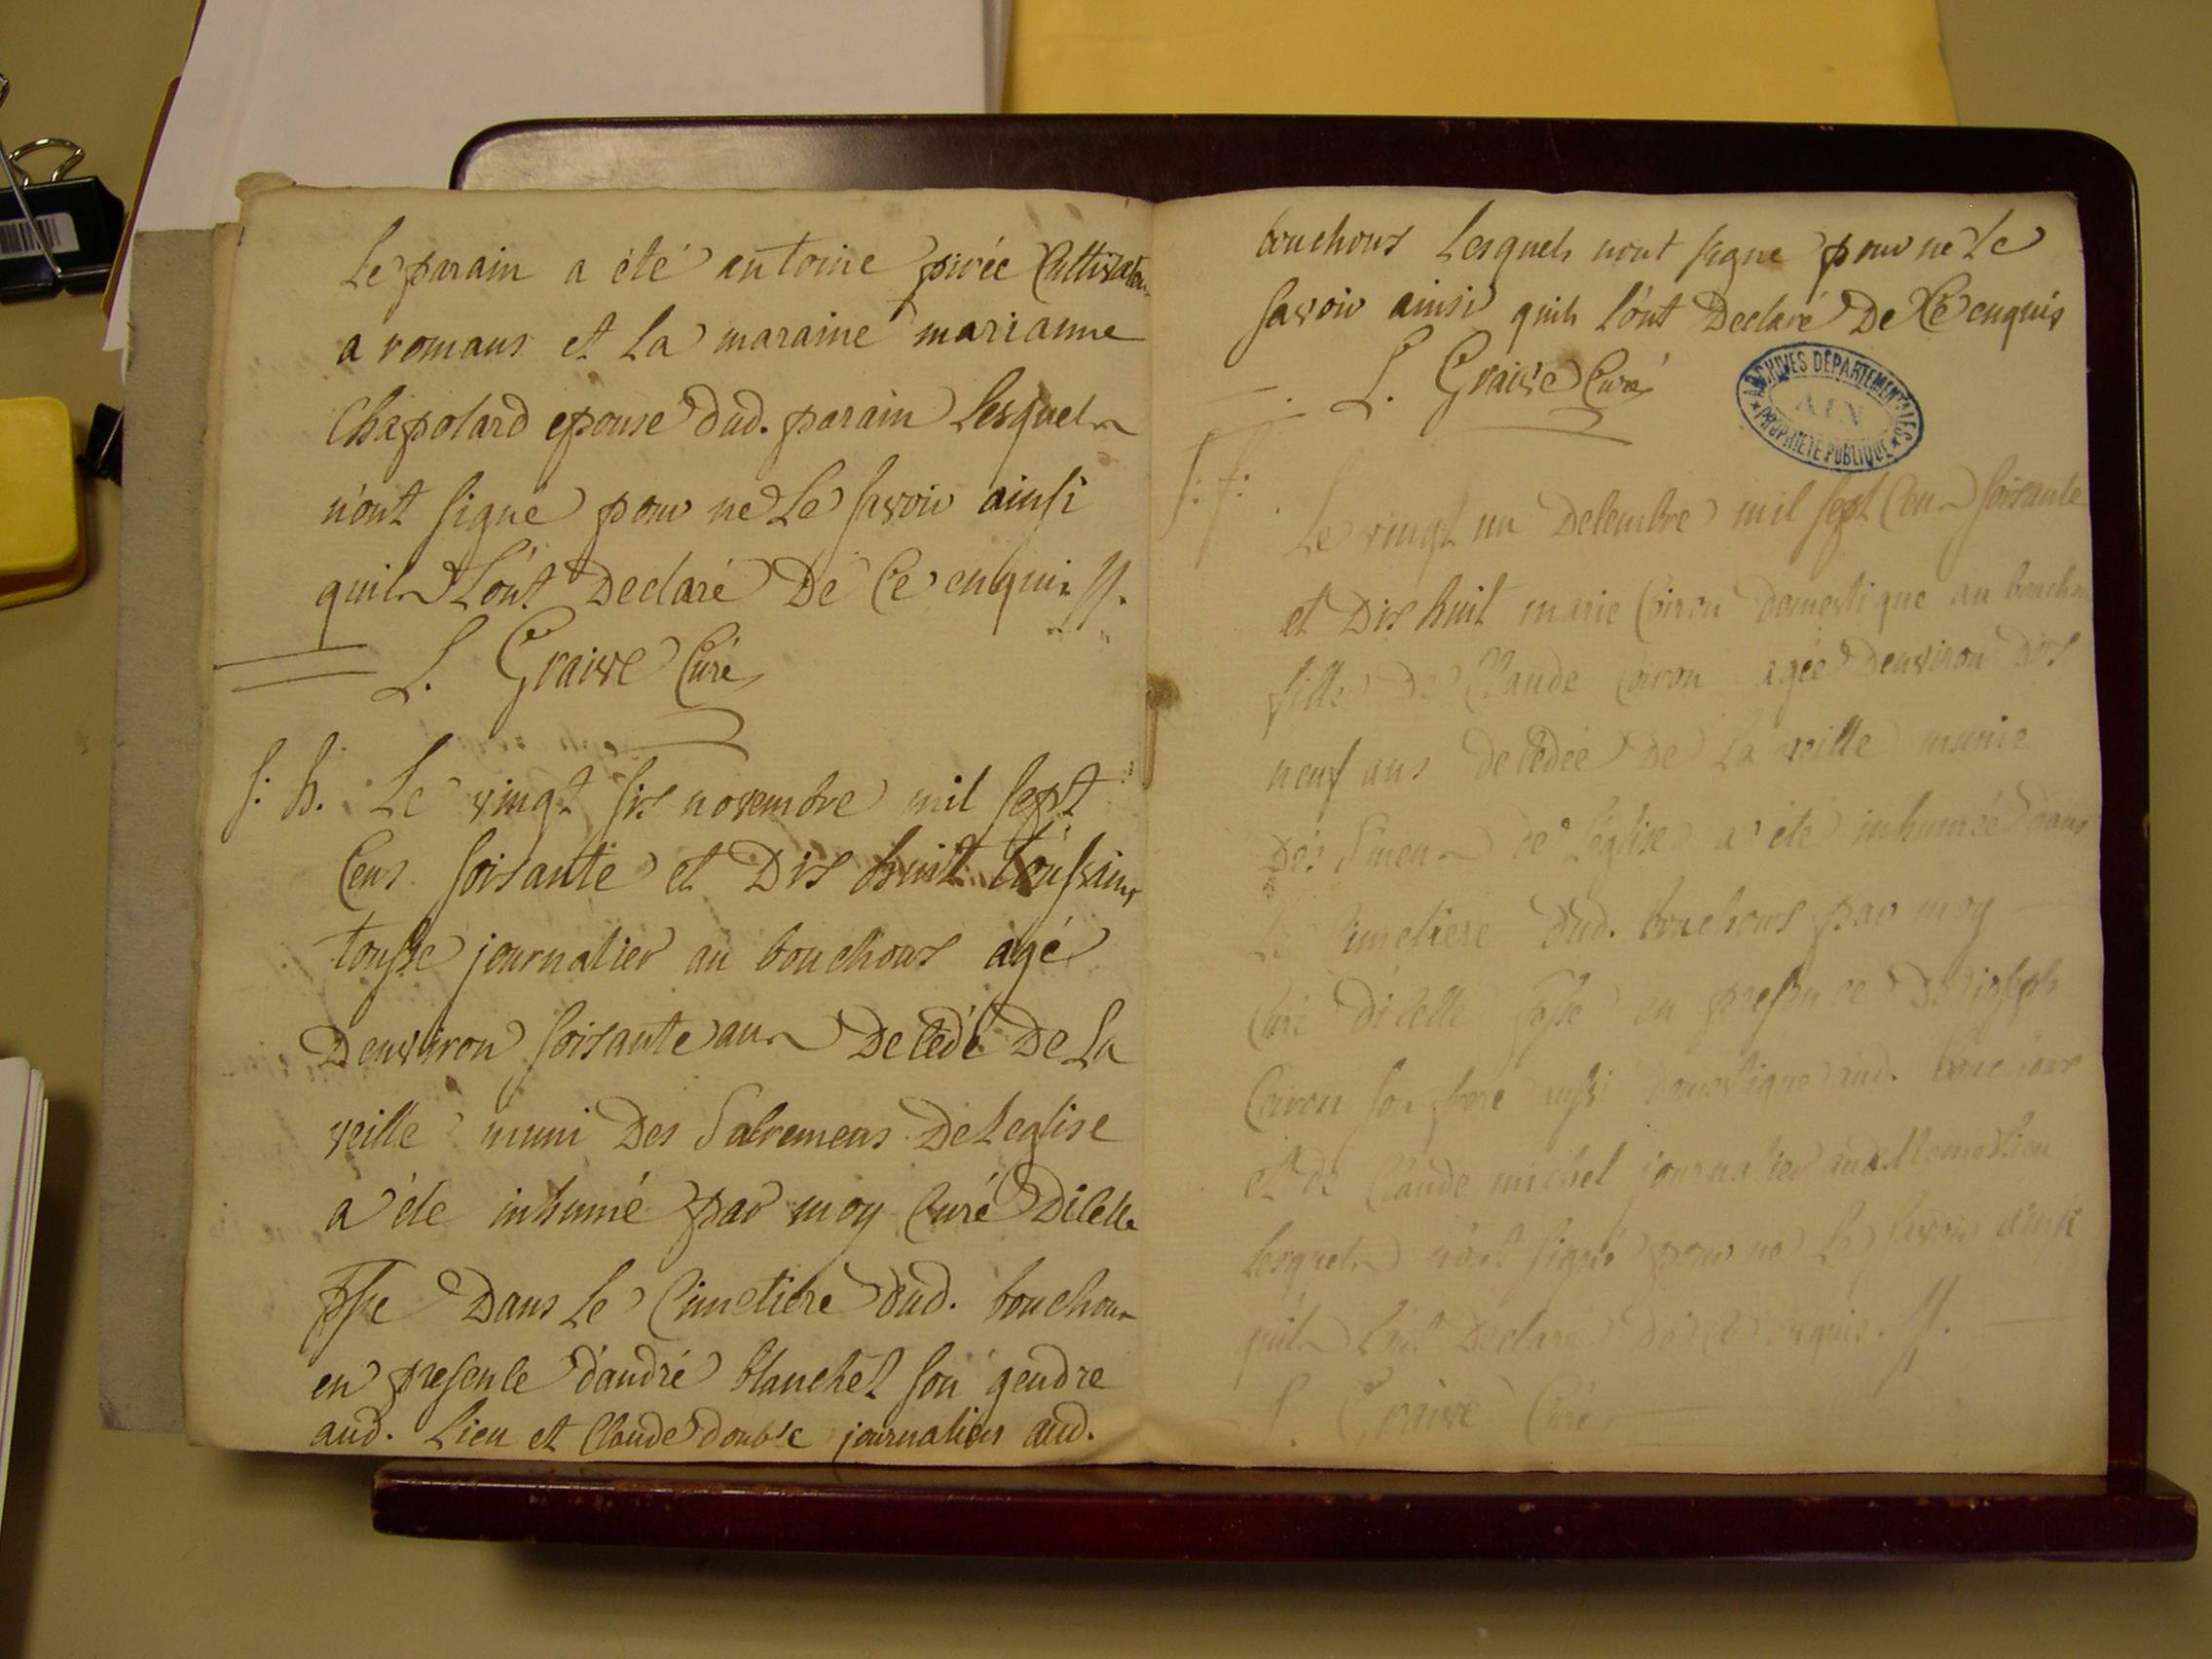 Le parain a été antoine pirée Cultivateur
a romans et La maraine marianne
Chapolard epouse dud. parain Lesquels
n'ont signé pour ne Le savoir ainsi
quils L'ônt Declaré De Ce enquis //.
L. Graive Curé
s: h. Le vingt six novembre mil sept
Cens soixante et Dix huit toussain
journalier au bouchoux agé
Denviron soixante ans Decédé De La
veille muni Des Sacremens De Leglise
a été inhumé par moy Curé Dicelle
psse Dans Le Cimetiere dud. bouchoux
en presence d'andré blanchet son gendre
aud. Lieu et Claude journaliers aud.
bouchoux Lesquels nont signe pour ne Le
savoir ainsi quils l'ônt Declaré De Ce enquis
L. Graive Curé
ARCHIVES DÉPARTEMENTALES
AIN
PROPRIÉTÉ PUBLIQUE
s: f:
Le vingt un Decembre mil sept Cens soixante
et Dix huit marie Coiron domestique au bouchoux
fille De Claude Coiron agée Denviron Dix
neuf ans Decédée De La veille munie
Des de Leglise a été inhumée dans
Le Cimetiere Dud. bouchoux par moy
Curé Dicelle psse en presence De joseph
Coiron son frere aussi domestique aud. bouchoux
et de Claude michel journalier Lieu
Lesquels n'ont signé pour ne Le savoir ainsi
quils L'ônt Declaré De Ce enquis. //.
L. Graive Curé